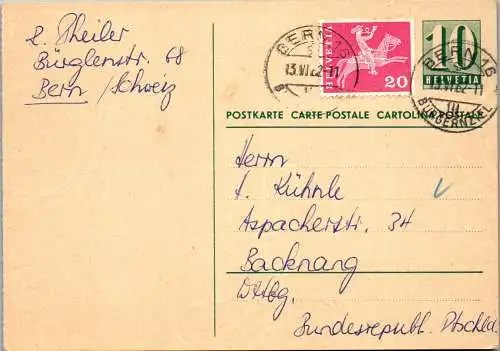 2. Theiler
Bürglenstr. 68
Bern / Schweiz
BERN 16
13.VI.62-11
HELVETIA
20
10
HELVETIA
BERN 16
13.VI.62-11
BURGERNZIEL
POSTKARTE CARTE POSTALE CARTOLINA POSTALE
Herrn
F. Kühnle
Aspacherstr. 34
Backnang
Wttbg.
Bundesrepubl. Dtschld.